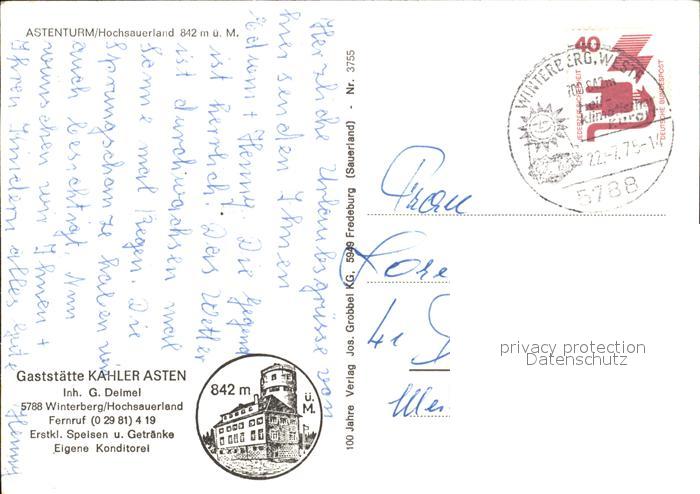 ASTENTURM/Hochsauerland 842 m ü. M.
Herzliche Urlaubsgrüsse von
hier senden Ihnen
Edwin + Henny. Die Gegend
ist herrlich. Das Wetter
ist durchwachsen mal
Sonne mal Regen. Die
Sprungschanze haben wir
auch besichtigt. Nun
wünschen wir Ihnen +
Ihren Kindern alles Gute
Henny
Gaststätte KAHLER ASTEN
Inh. G. Deimel
5788 Winterberg/Hochsauerland
Fernruf (0 29 81) 4 19
Erstkl. Speisen u. Getränke
Eigene Konditorei
842 m
ü.
M.
100 Jahre Verlag Jos. Grobbel KG, 5949 Fredeburg (Sauerland) - Nr. 3755
40
DEUTSCHE BUNDESPOST
WINTERBERG, WESTF
22.-7.75-14
5788
Frau
Lore
41
privacy protection
Datenschutz